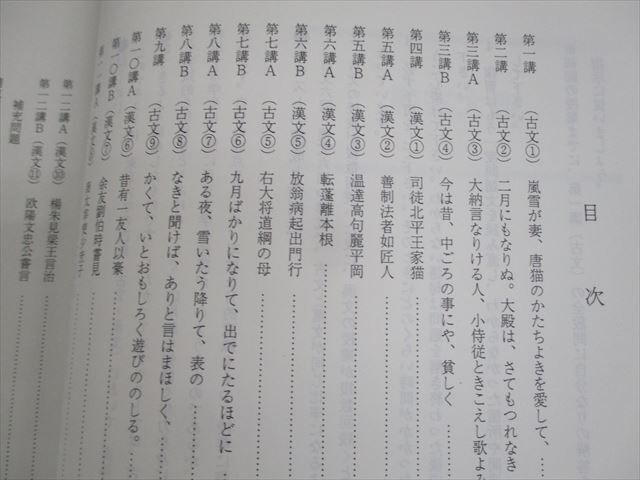 目次
第一講 (古文①) 嵐雪が妻、唐猫のかたちよきを愛して、……
第二講 (古文②) 二月にもなりぬ。大殿は、さてもつれなき
第三講A (古文③) 大納言なりける人、小侍従ときこえし歌よみ
第三講B (古文④) 今は昔、中ごろの事にや、貧しく……
第四講 (漢文①) 司徒北平王家猫……
第五講A (漢文②) 善制法者如匠人……
第五講B (漢文③) 温達高句麗平岡……
第六講A (漢文④) 転蓬離本根……
第六講B (漢文⑤) 放翁病起出門行……
第七講A (古文⑤) 右大将道綱の母……
第七講B (古文⑥) 九月ばかりになりて、出でにたるほどに……
第八講A (古文⑦) ある夜、雪いたう降りて、表の……
第八講B (古文⑧) なきと聞けば、ありと言はまほしく、……
第九講 (古文⑨) かくて、いとおもしろく遊びののしる。……
第一〇講A (漢文⑥) 昔有一友人以豪……
第一〇講B (漢文⑦) 余友劉伯時嘗見……
第一一講A (漢文⑧)
第一二講A (漢文⑩) 楊朱見梁王言治……
第一二講B (漢文⑪) 欧陽文忠公書言……
補充問題